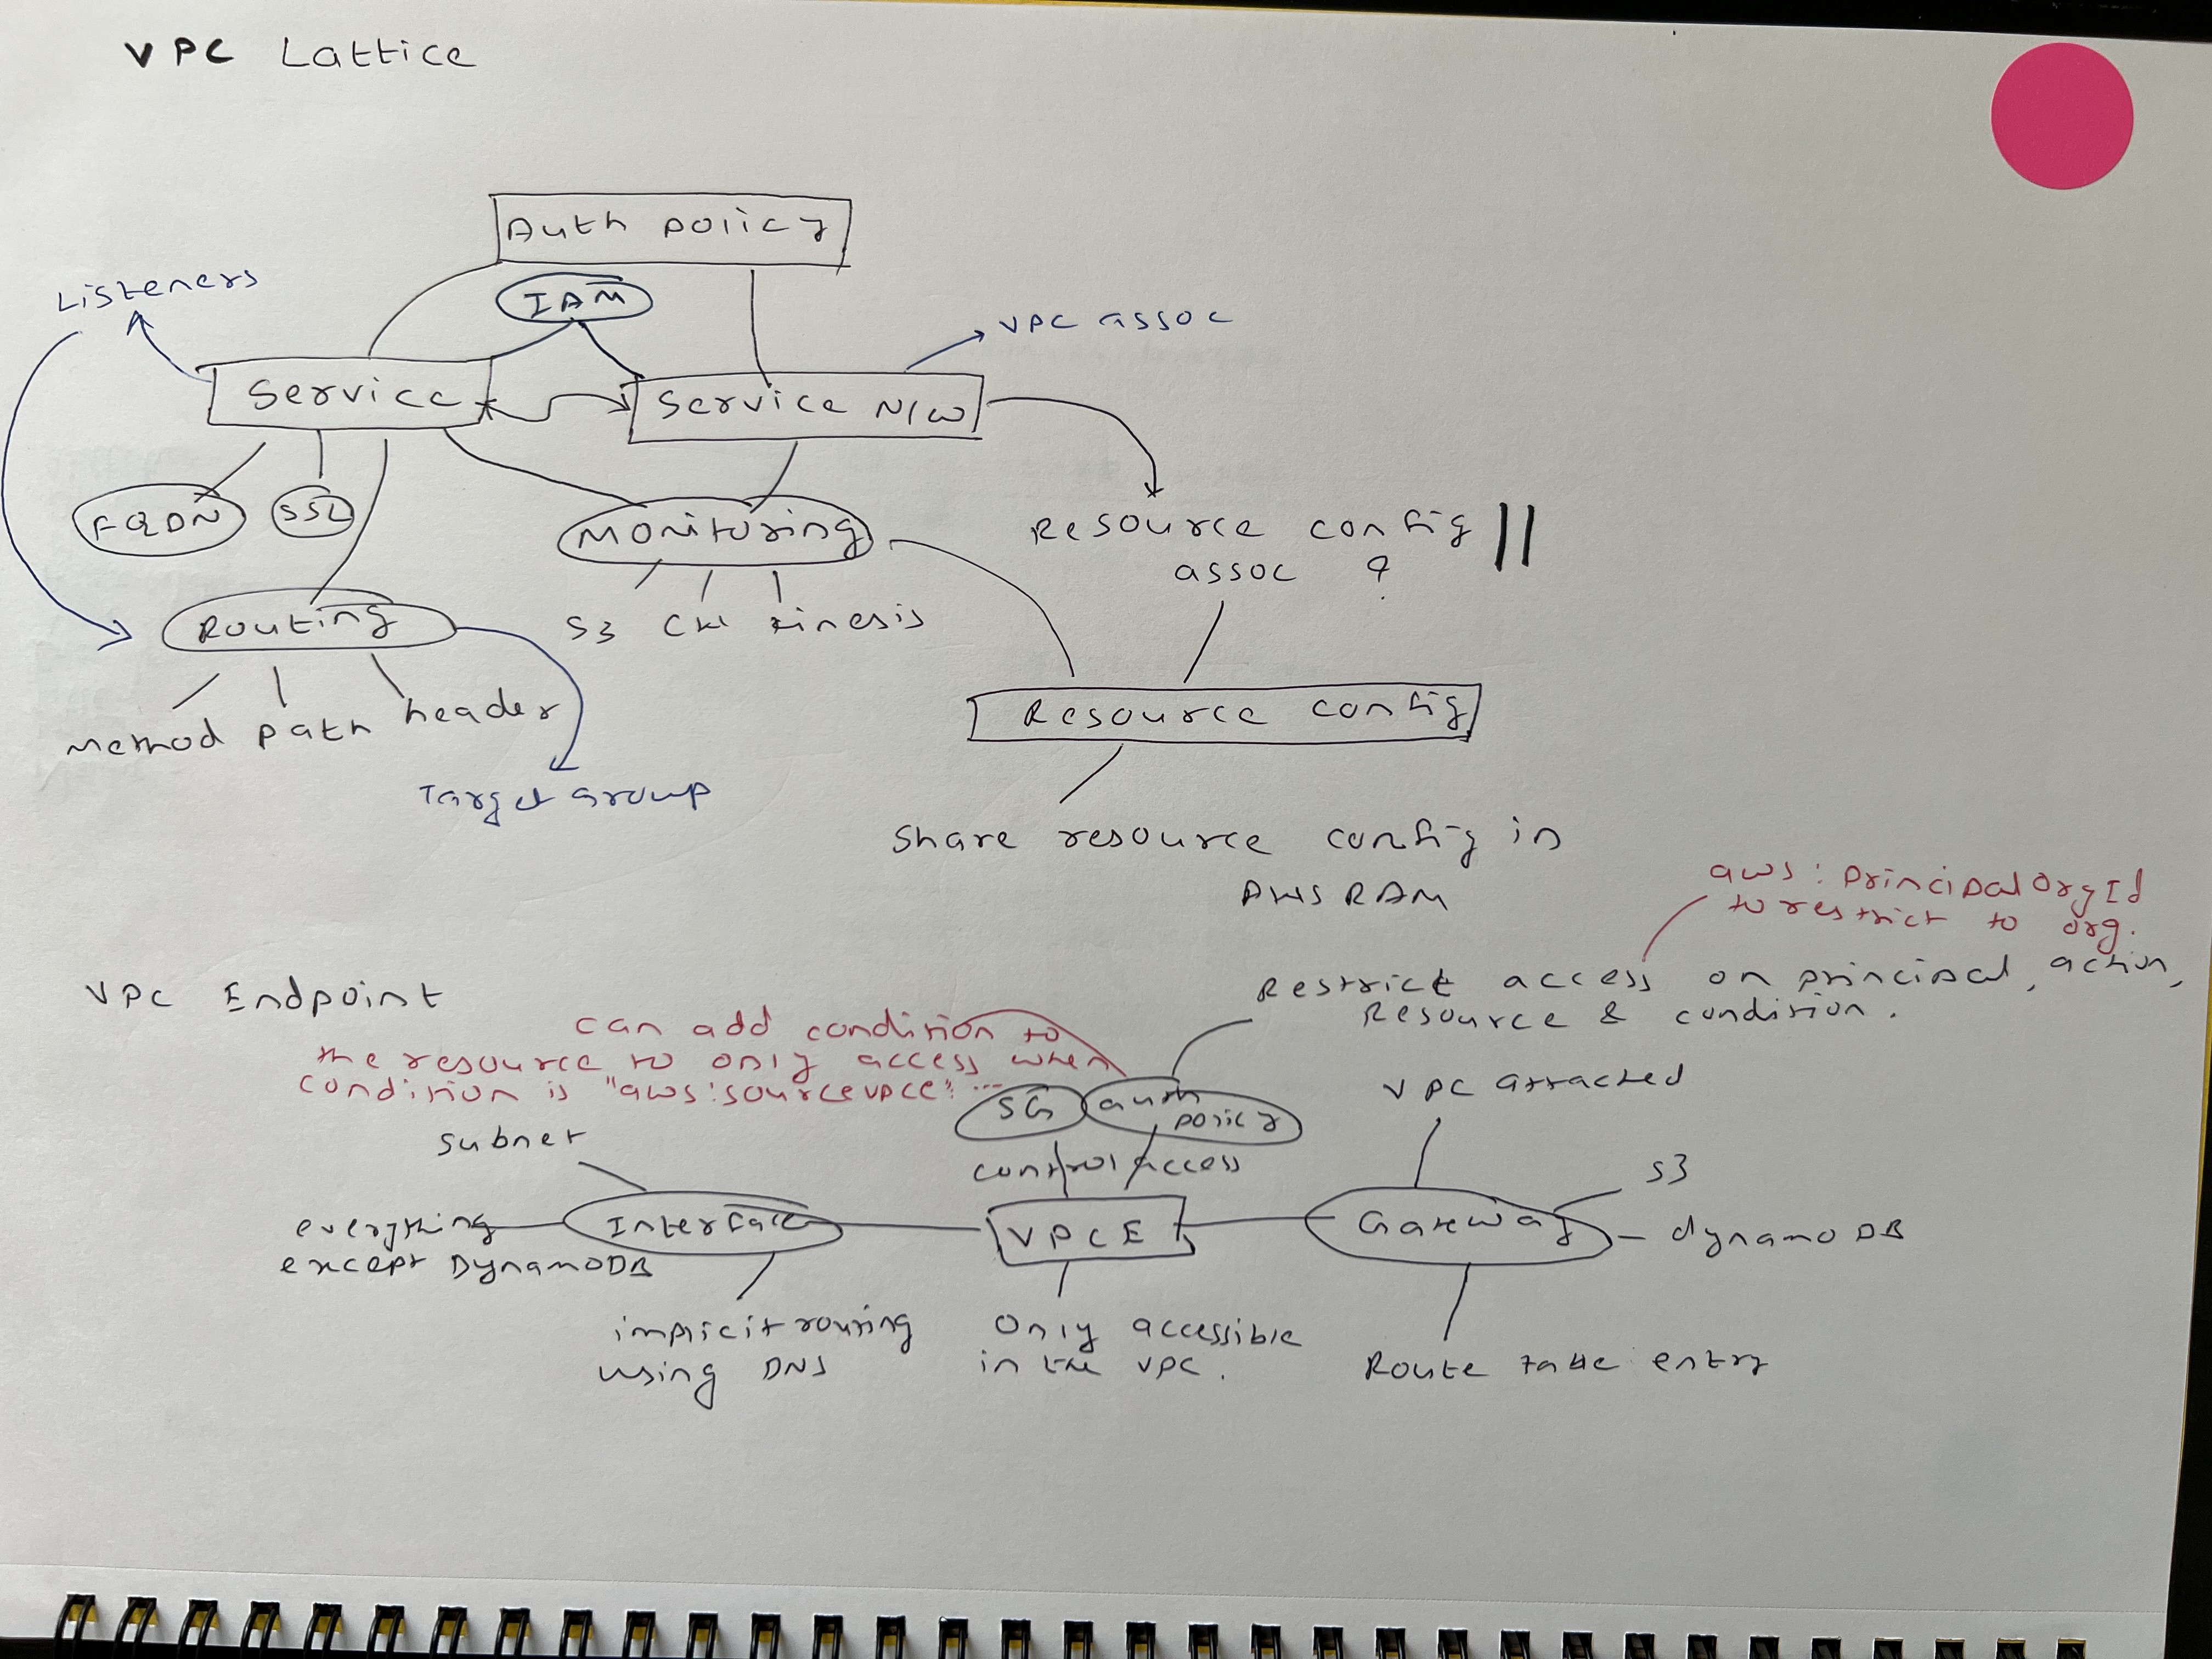 VPC Lattice
Auth policy
IAM
Listeners
VPC assoc
Service
Service N/W
FQDN
SSL
Monitoring
Resource config
assoc ?
Routing
S3 CW Kinesis
Method path header
Resource config
Target Group
Share resource config in
AWS RAM
aws:principalOrgId
to restrict to org.
VPC Endpoint
Restrict access on principal, action,
Resource & condition.
can add condition to
the resource to only access when
condition is "aws:sourcevpce" ...
VPC attached
SG
auth
policy
subnet
control access
S3
everything
except DynamoDB
Interface
VPCE
Gateway
dynamo DB
implicit routing
using DNS
Only accessible
in the VPC.
Route table entry